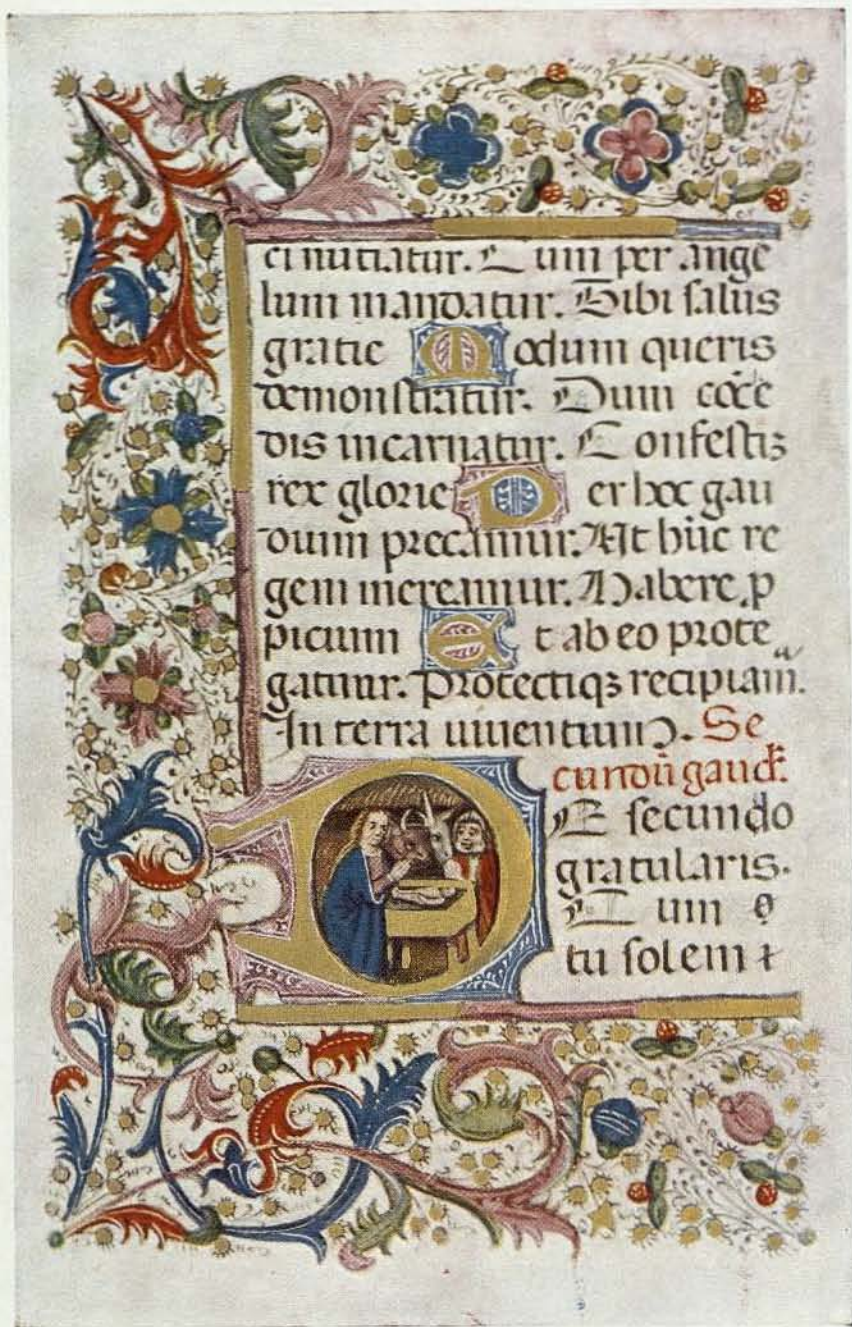 ei nutiatur. Cum per ange
lum mandatur. Tibi salus
gratie Modum queris
demonstratur. Dum cōce
dis incarnatur. Confestiȝ
rex glorie Per hoc gau
dium precamur. Ut hūc re
gem mereamur. Habere, p
picium Et ab eo prote
gamur. Protectiqȝ recipiam̄.
In terra viventium. Se
cundū gaud.
E secundo
gratularis.
Tum ꝙ
tu solem ⁊